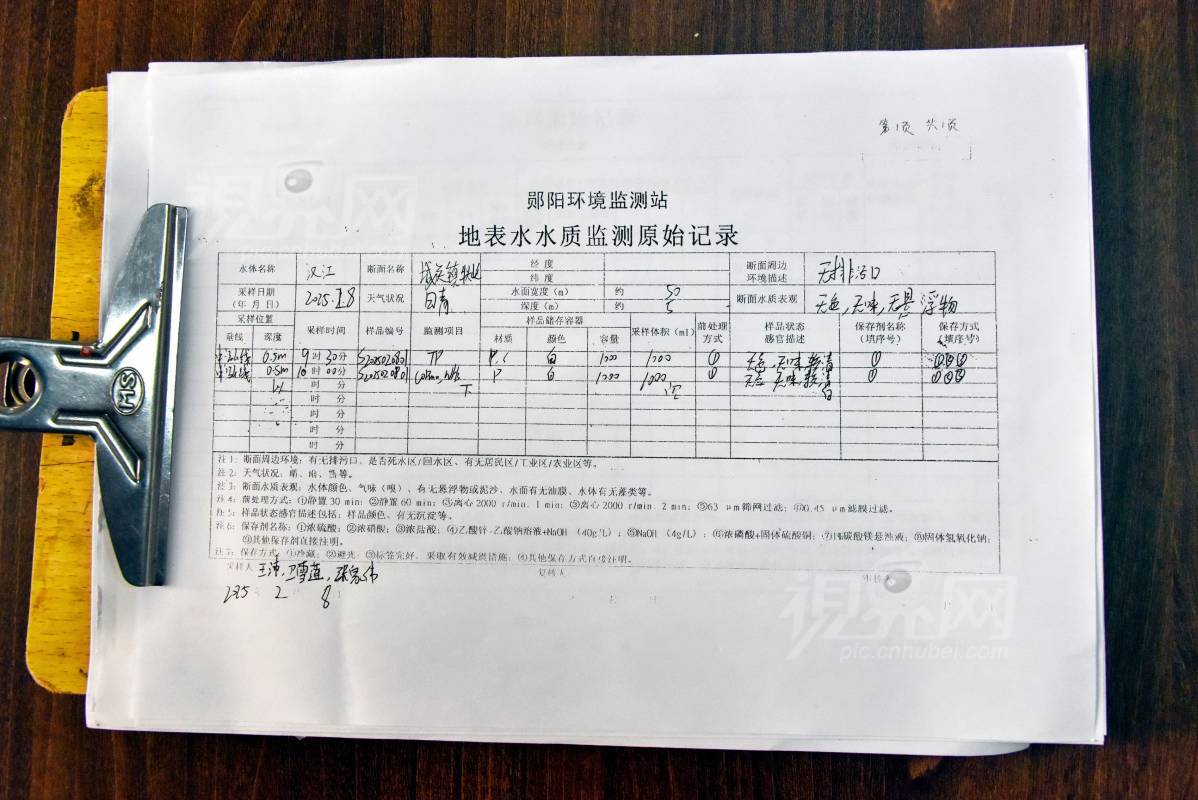 第1页 共1页
郧阳环境监测站
地表水水质监测原始记录
水体名称 汉江 断面名称 经度 断面周边环境描述 无排污口
纬度
采样日期(年 月 日) 2025. 8 天气状况 水面宽度(m) 约 50 断面水质表观 无色,无味,无悬浮物
深度(m) 约 5
采样位置 采样时间 样品编号 监测项目 样品储存容器 采样体积(ml) 前处理方式 样品状态感官描述 保存剂名称(填序号) 保存方式(填序号)
垂线 深度 材质 颜色 容量
0.5m 9时30分 TP P 白 1000 1000 ① 无色 无味 ① ①②③
0.5m 10时00分 P 白 1000 1000 ① 无色 无味 ① ①②③
时 分
时 分
时 分
时 分
注1:断面周边环境:有无排污口、是否死水区/回水区、有无居民区/工业区/农业区等。
注2:天气状况:晴、雨、雪等。
注3:断面水质表观:水体颜色、气味(嗅)、有无悬浮物或泥沙、水面有无油膜、水体有无藻类等。
注4:前处理方式:①静置30 min;②静置60 min;③离心2000 r/min,1 min;④离心2000 r/min 2 min;⑤63 μm筛网过滤;⑥0.45 μm滤膜过滤。
注5:样品状态感官描述包括:样品颜色、有无沉淀等。
注6:保存剂名称:①浓硫酸;②浓硝酸;③浓盐酸;④乙酸锌-乙酸钠溶液+NaOH (40g/L);⑤NaOH (4g/L);⑥浓磷酸+固体硫酸铜;⑦1%碳酸镁悬浊液;⑧固体氢氧化钠;
⑨其他保存剂直接注明。
注7:保存方式:①冷藏;②避光;③标签完好、采取有效减震措施;④其他保存方式直接注明。
采样人 复核人 审核人
2025 2 8
視界网
pic.cnhubei.com
視界网
SHI